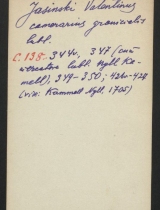 Jasinski Valentinus
camerarius granicialis
lubl.
C. 138. 344v, 347 (cum
lubl. Ngbl. Ka-
mell), 349-350; 424-429
(vix: Kammell Ngbl. 1705)